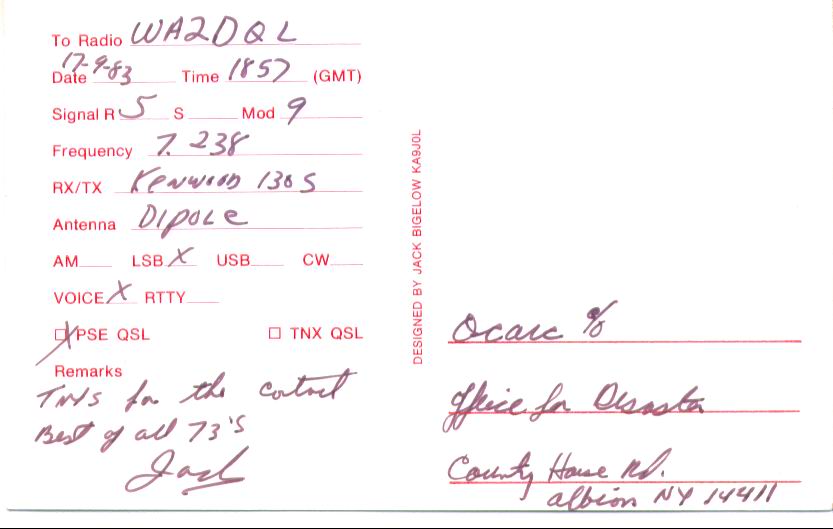 To Radio WA2DQL
17-9-83
Date Time 1857 (GMT)
Signal R 5 S Mod 9
Frequency 7.238
RX/TX Kenwood 130S
Antenna Dipole
AM LSB X USB CW
VOICE X RTTY
X PSE QSL TNX QSL
Remarks
TNXS for the contact
Best of all 73'S
Jack
DESIGNED BY JACK BIGELOW KA9JOL
Ocarc %
Office for Disaster
County House Rd.
albion NY 14411